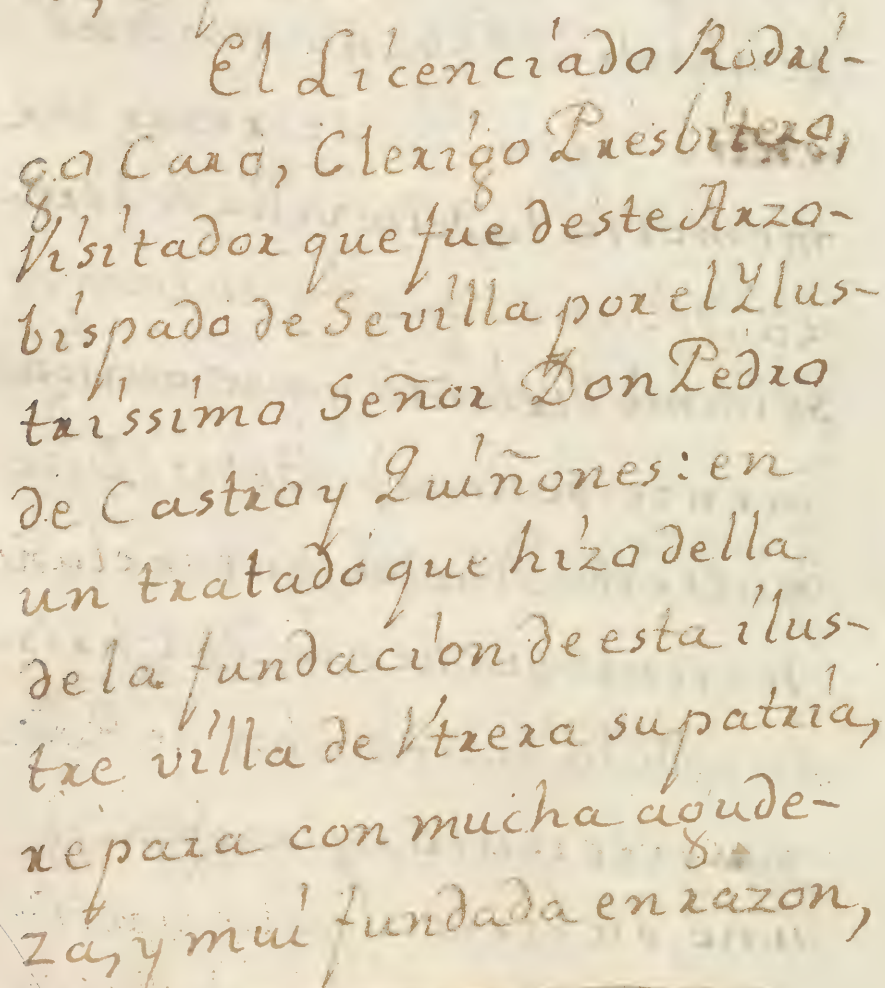 El Licenciado Rodri-
go Caro, Clerigo Presbitero,
Visitador que fue deste Arzo-
bispado de Sevilla por el Ylus-
trissimo Señor Don Pedro
de Castro y Quiñones: en
un tratado que hizo della
de la fundacion de esta ilus-
tre villa de Vtrera su patria,
repara con mucha agude-
za, y mui fundada en razon,